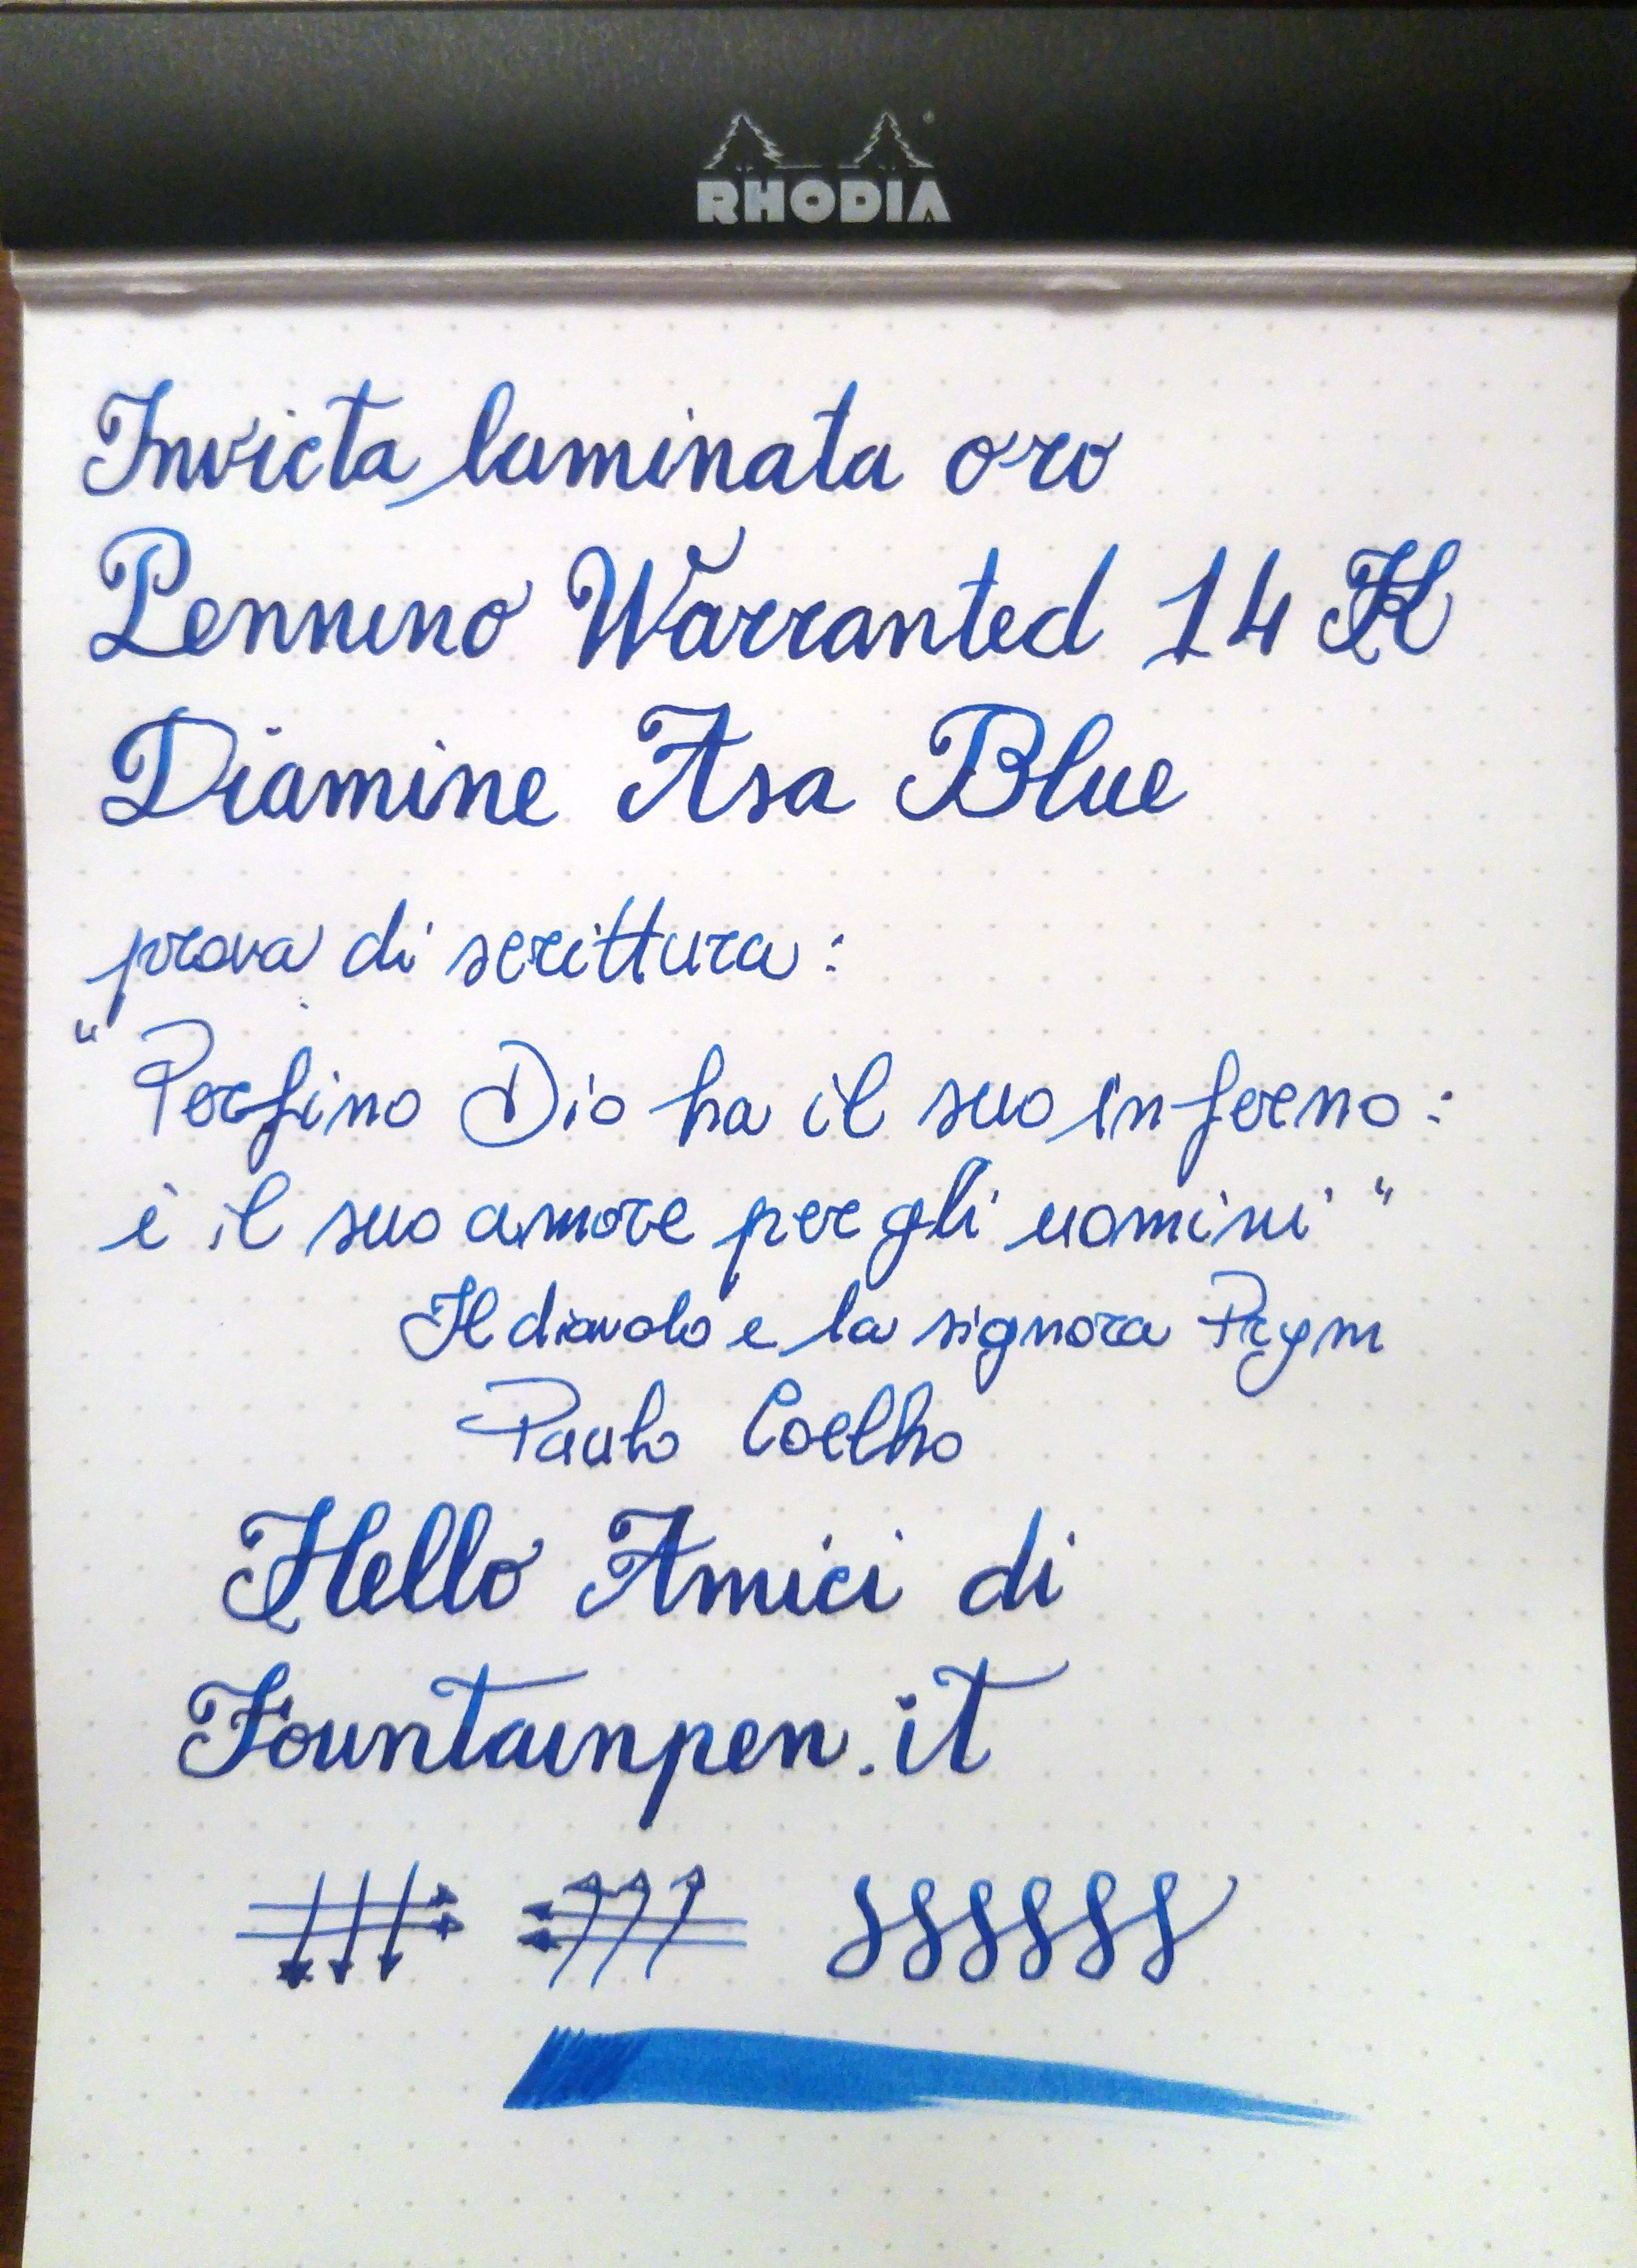 RHODIA
Invicta laminata oro
Pennino Warranted 14 K
Diamine Asa Blue
prova di scrittura:
"Perfino Dio ha il suo inferno:
è il suo amore per gli uomini"
Il diavolo e la signora Prym
Paulo Coelho
Hello Amici di
Fountainpen.it